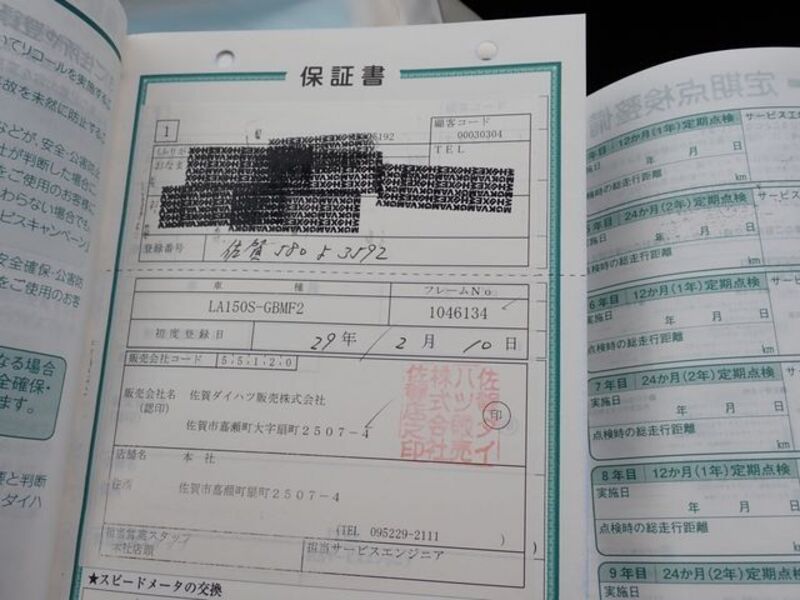 いてリコールを実施する
故を未然に防止する
などが、安全・公害防
社が判断した場合に
をご使用のお客様に
わらない場合でも、
ビスキャンペーン」
安全確保・公害防
をご使用のお客
なる場合
全確保・
ます。
要と判断
ダイハ
保証書
1
顧客コード
00030304
TEL
登録番号
佐賀 580 よ 3592
車種
フレームNo
LA150S-GBMF2
1046134
初度登録日
29年 2月 10日
販売会社コード 55120
販売会社名 佐賀ダイハツ販売株式会社
(認印)
佐賀市嘉瀬町大字扇町2507-4
印
佐賀ダイハツ販売株式会社
店舗名 本社
住所 佐賀市嘉瀬町扇町2507-4
(TEL 095229-2111 )
担当営業スタッフ
本社店頭
担当サービスエンジニア
★スピードメータの交換
定期点検整備
年目 12か月(1年)定期点検
サービスエ
実施日
年 月 日
点検時の総走行距離
km
年目 24か月(2年)定期点検
サービス
実施日
年 月 日
点検時の総走行距離
km
6年目 12か月(1年)定期点検
サービ
実施日
年 月 日
点検時の総走行距離
km
7年目 24か月(2年)定期点検
サ
実施日
年 月 日
点検時の総走行距離
km
8年目 12か月(1年)定期点検
実施日
年 月 日
点検時の総走行距離
km
9年目 24か月(2年)定期点検
実施日